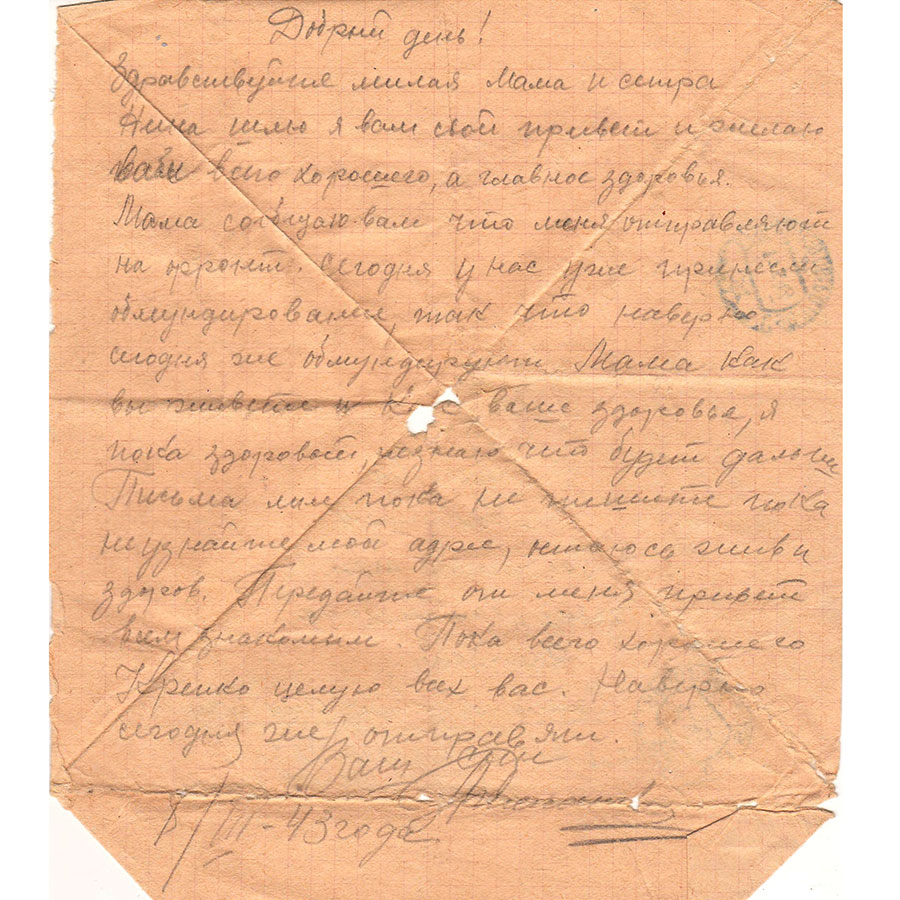 Добрый день!
Здравствуйте милая Мама и сестра
Нина шлю я вам свой привет и желаю
вам всего хорошего, а главное здоровья.
Мама сообщаю вам что меня отправляют
на фронт. Сегодня у нас уже принесли
обмундирование, так что наверно
сегодня же обмундируют. Мама как
вы живете и как ваше здоровье, я
пока здоровый, незнаю что будет дальше
Письма мне пока не пишите пока
не узнайте мой адрес, остаюсь жив и
здоров. Передайте от меня привет
всем знакомым. Пока всего хорошего
Крепко целую всех вас. Наверно
сегодня же отправят.
Ваш сын
/III-43 года